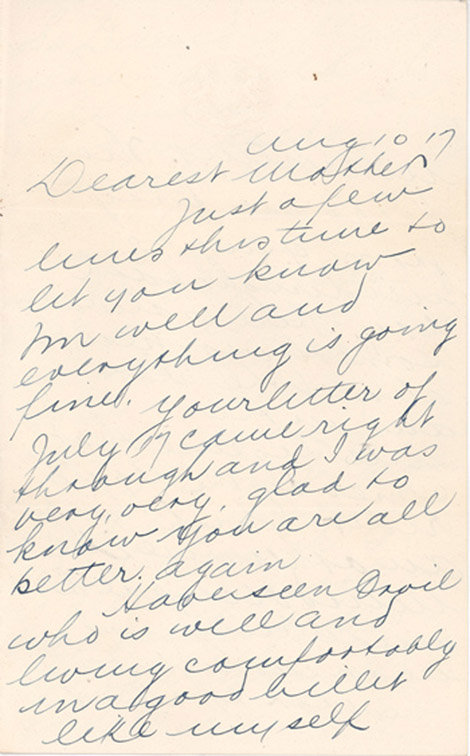 Aug 10 17
Dearest Mother
Just a few
lines this time to
let you know
Im well and
everything is going
fine. Your letter of
July 17 came right
through and I was
very, very, glad to
know you are all
better again
Have seen
who is well and
living comfortably
in a good billet
like myself